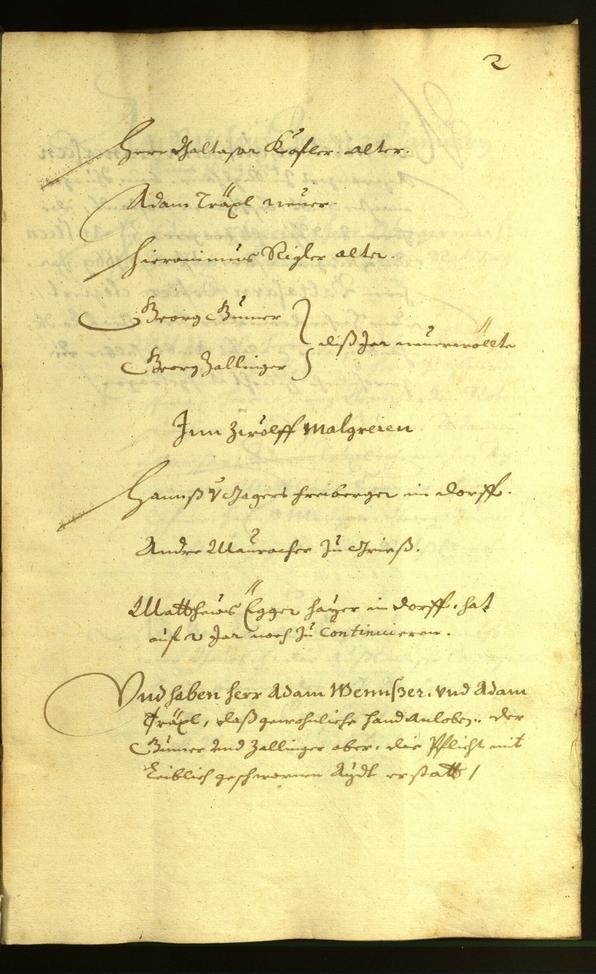 2
Herr Balthasar Kofler. alter.
Adam Träxl neuer.
Hieronimus Rigler alter.
Georg Gumer
Georg Zallinger } diß Jar neuerwöllte
Inn Zwölff Malgreien
Hannß Jagers freiberger im dorff.
Andre Mauracher Zu Grieß.
Mattheus Egger Haÿer im dorff. hat
auf 2 Jar noch Zu continuieren.
Vnd haben herr Adam Wennser. vnd Adam
Träxl, das gewohnliche handAnloben. der
Gumer vnd Zallinger aber. die Pflicht mit
Leiblich geschwornen Aÿdt erstatt /